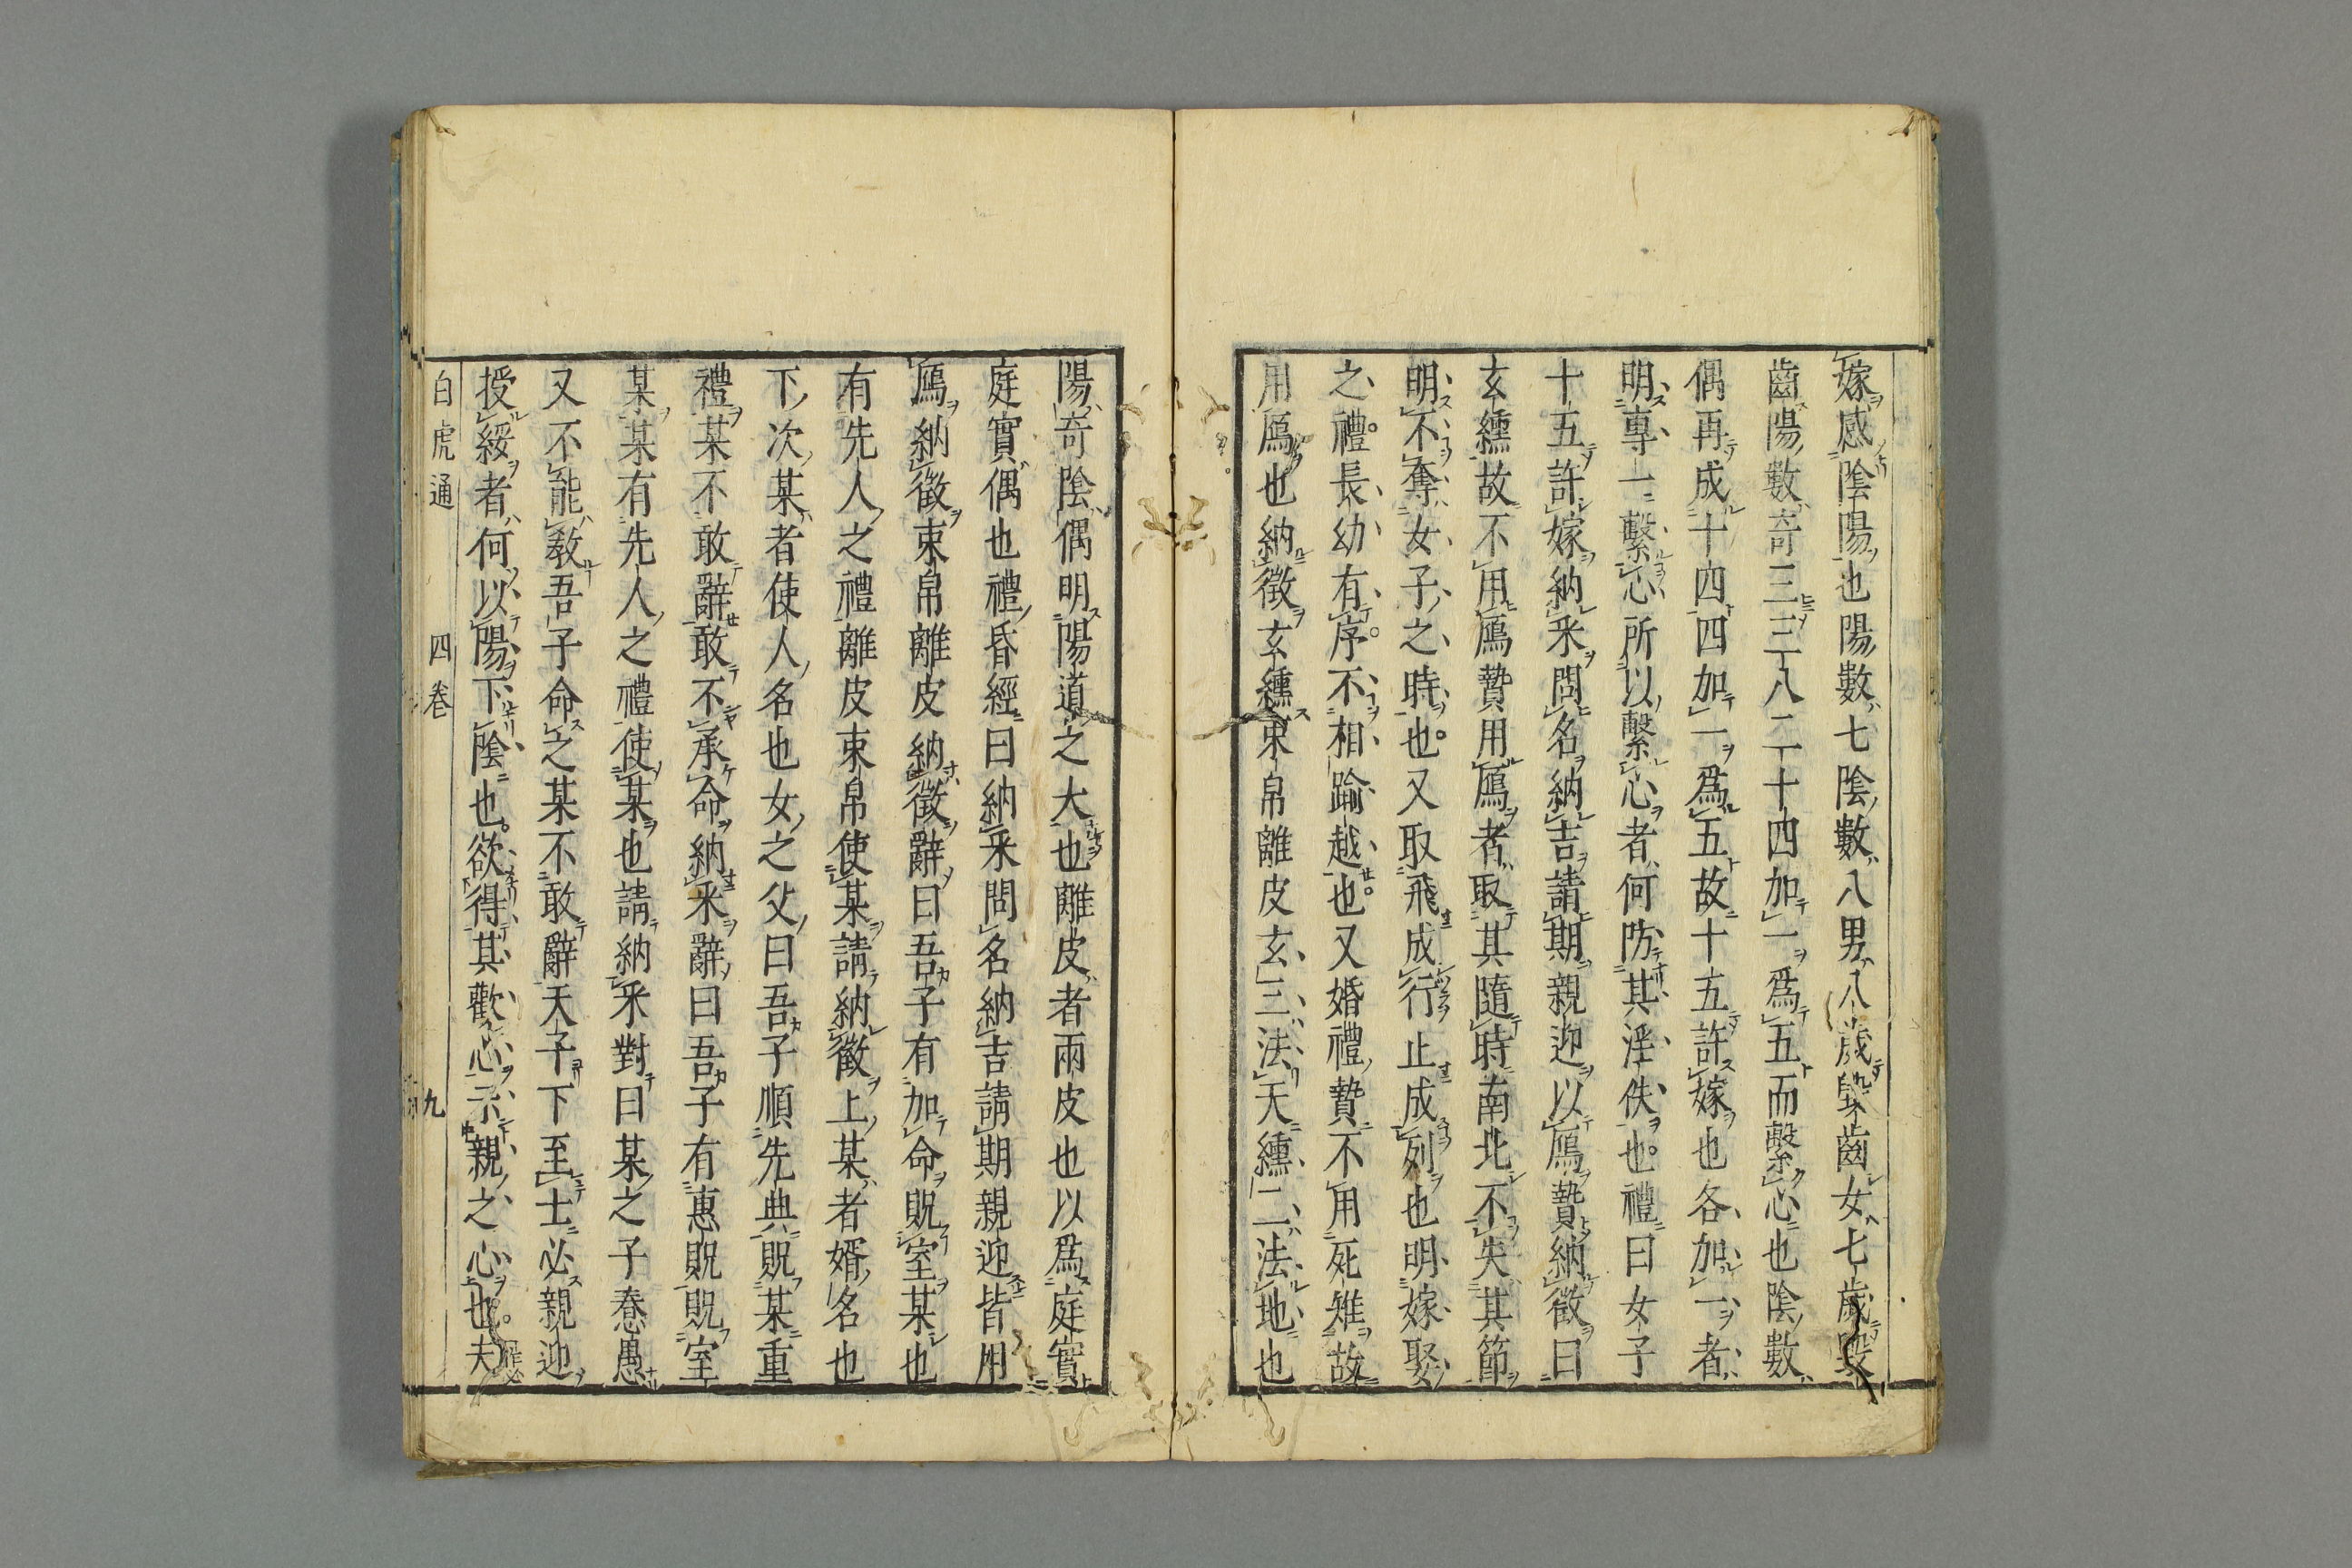 嫁感陰陽也陽數七陰數八男八歲毀齒女七歲毀
齒陽數奇三三八二十四加一爲五而繫心也陰數
偶再成十四四加一爲五故十五許嫁也各加一者
明專一繫心所以繫心者何防其淫佚也禮曰女子
十五許嫁納采問名納吉請期親迎以鴈贄納徵曰
玄纁故不用鴈贄用鴈者取其隨時南北不失其節
明不奪女子之時也又取飛成行止成列也明嫁娶
之禮長幼有序不相踰越也又婚禮贄不用死雉故
用鴈也納徵玄纁束帛離皮玄三法天纁二法地也
陽奇陰偶明陽道之大也離皮者兩皮也以爲庭實
庭實偶也禮昏經曰納采問名納吉請期親迎皆用
鴈納徵束帛離皮納徵辭曰吾子有加命貺室某也
有先人之禮離皮束帛使某請納徵上某者婿名也
下次某者使人名也女之父曰吾子順先典貺某重
禮某不敢辭敢不承命納采辭曰吾子有惠貺貺室
某某有先人之禮使某也請納采對曰某之子惷愚
又不能教吾子命之某不敢辭天子下至士必親迎
授綏者何以陽下陰也欲得其歡心示親之心也夫
白虎通 四卷 九